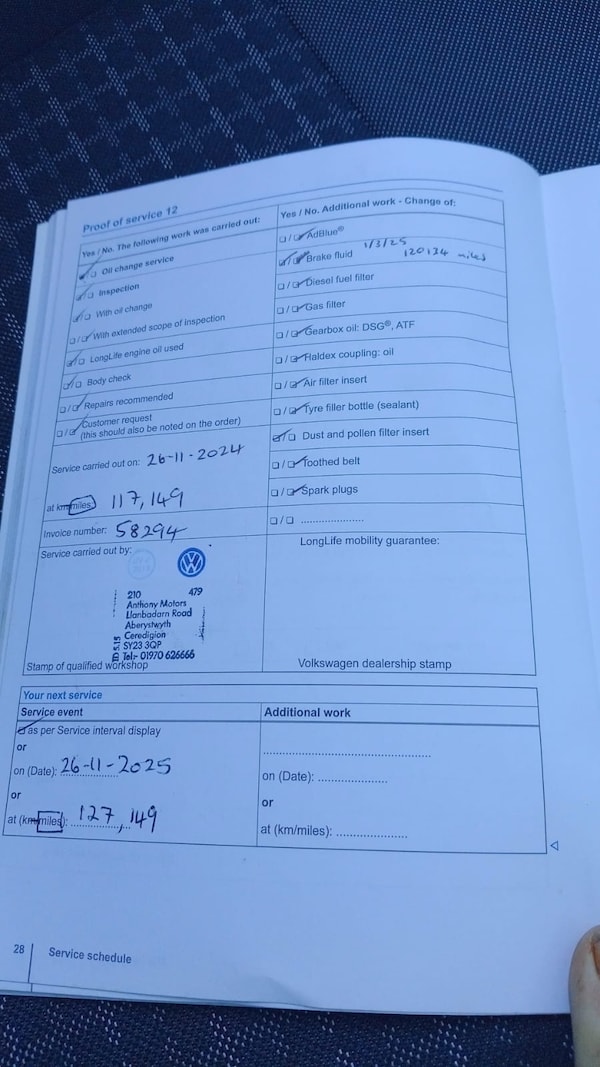 Proof of service 12
Yes / No. The following work was carried out:
Oil change service
Inspection
With oil change
With extended scope of inspection
LongLife engine oil used
Body check
Repairs recommended
Customer request
(this should also be noted on the order)
Service carried out on: 26-11-2024
at km/miles: 117,149
Invoice number: 58294
Service carried out by:
210 479
Anthony Motors
Llanbadarn Road
Aberystwyth
Ceredigion
SY23 3QP
Tel:- 01970 626666
Stamp of qualified workshop
Yes / No. Additional work - Change of:
AdBlue®
Brake fluid 1/3/25 120134 miles
Diesel fuel filter
Gas filter
Gearbox oil: DSG®, ATF
Haldex coupling: oil
Air filter insert
Tyre filler bottle (sealant)
Dust and pollen filter insert
Toothed belt
Spark plugs
....................
LongLife mobility guarantee:
Volkswagen dealership stamp
Your next service
Service event
as per Service interval display
or
on (Date): 26-11-2025
or
at (km/miles): 127,149
Additional work
on (Date): ....................
or
at (km/miles): ....................
28 Service schedule